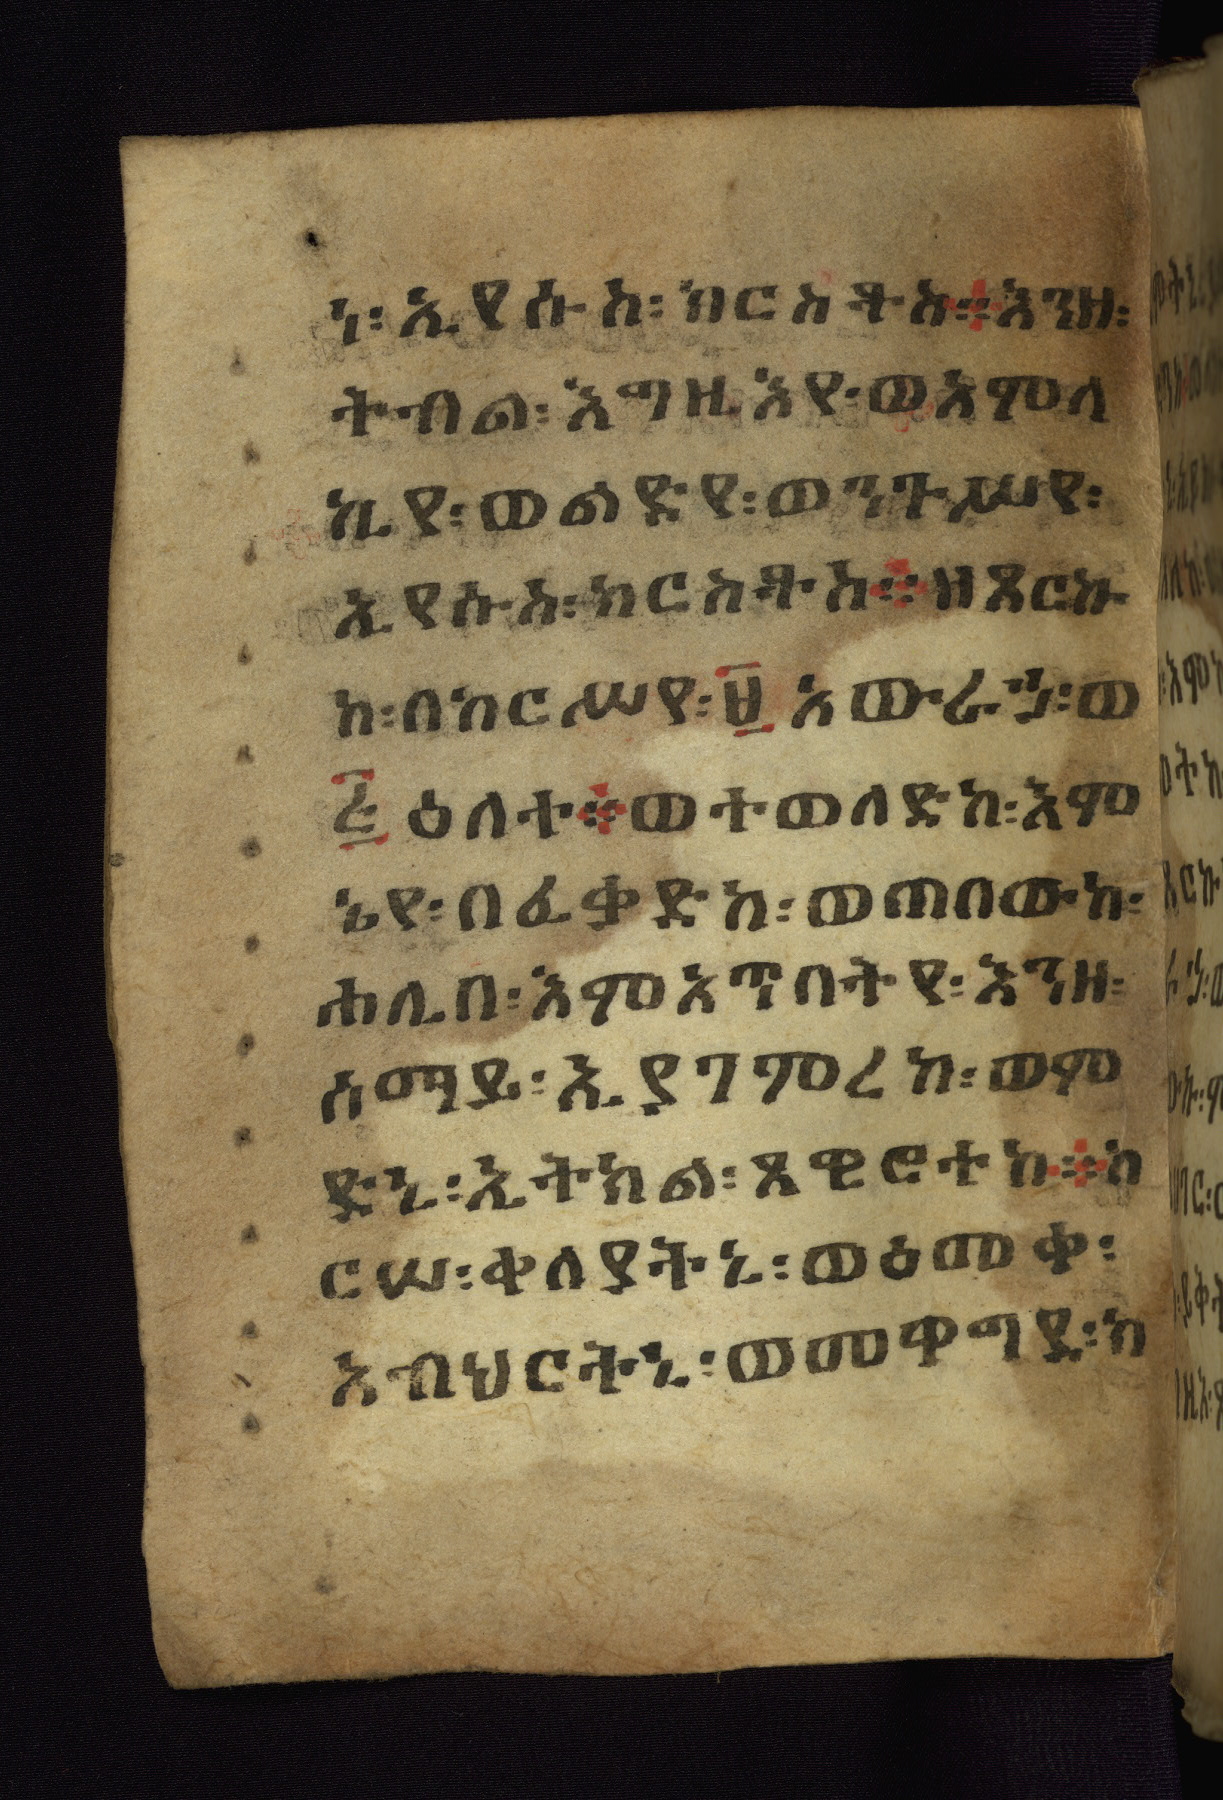 ነ፡ ኢየሱስ፡ ክርስቶስ፨ እንዘ፡
ትብል፡ እግዚእየ፡ ወአምላ
ኪየ፡ ወልድየ፡ ወንጉሥየ፡
ኢየሱስ፡ ክርስቶስ፨ ዘጾርኩ
ከ፡ በከርሥየ፡ ፱ አውራኃ፡ ወ
፭ ዕለተ፨ ወተወለድከ፡ እም
ኔየ፡ በፈቃድከ፡ ወጠበውከ፡
ሐሊበ፡ እምአጥባትየ፡ እንዘ፡
ሰማይ፡ ኢያገምረከ፡ ወም
ድኒ፡ ኢትክል፡ ጸዊሮተከ፨ ከ
ርሠ፡ ቀላያትኒ፡ ወዕመቀ፡
አብህርትኒ፡ ወመዋግደ፡ ከ